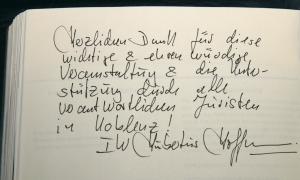 Herzlichen Dank für diese
wichtige & ehrenwürdige
Veranstaltung & die Unter-
stützung durch alle
verantwortlichen Juristen
in Koblenz!
Hubertus Hoffmann